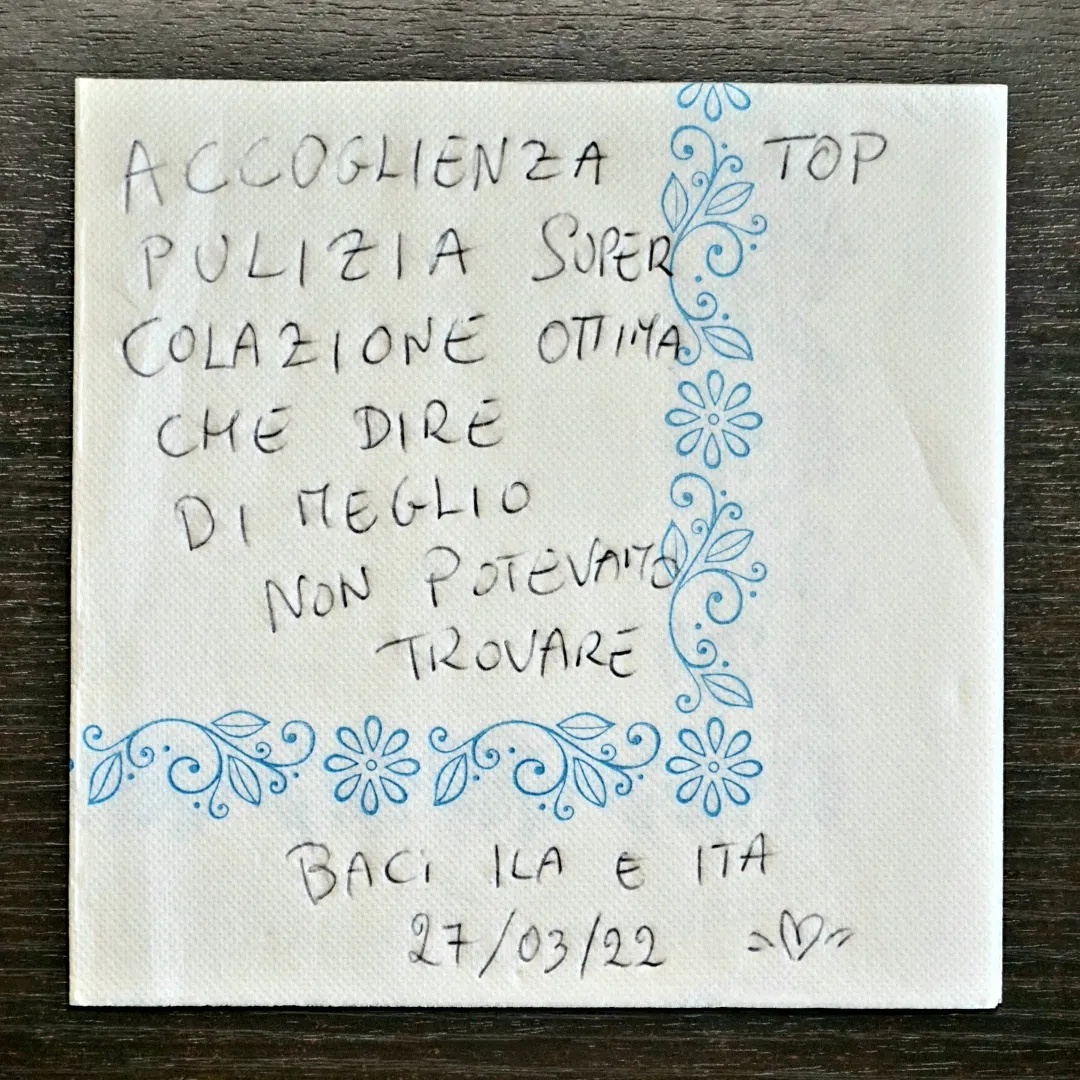 ACCOGLIENZA TOP
PULIZIA SUPER
COLAZIONE OTTIMA
CHE DIRE
DI MEGLIO
NON POTEVAMO
TROVARE
BACI ILA E ITA
27/03/22